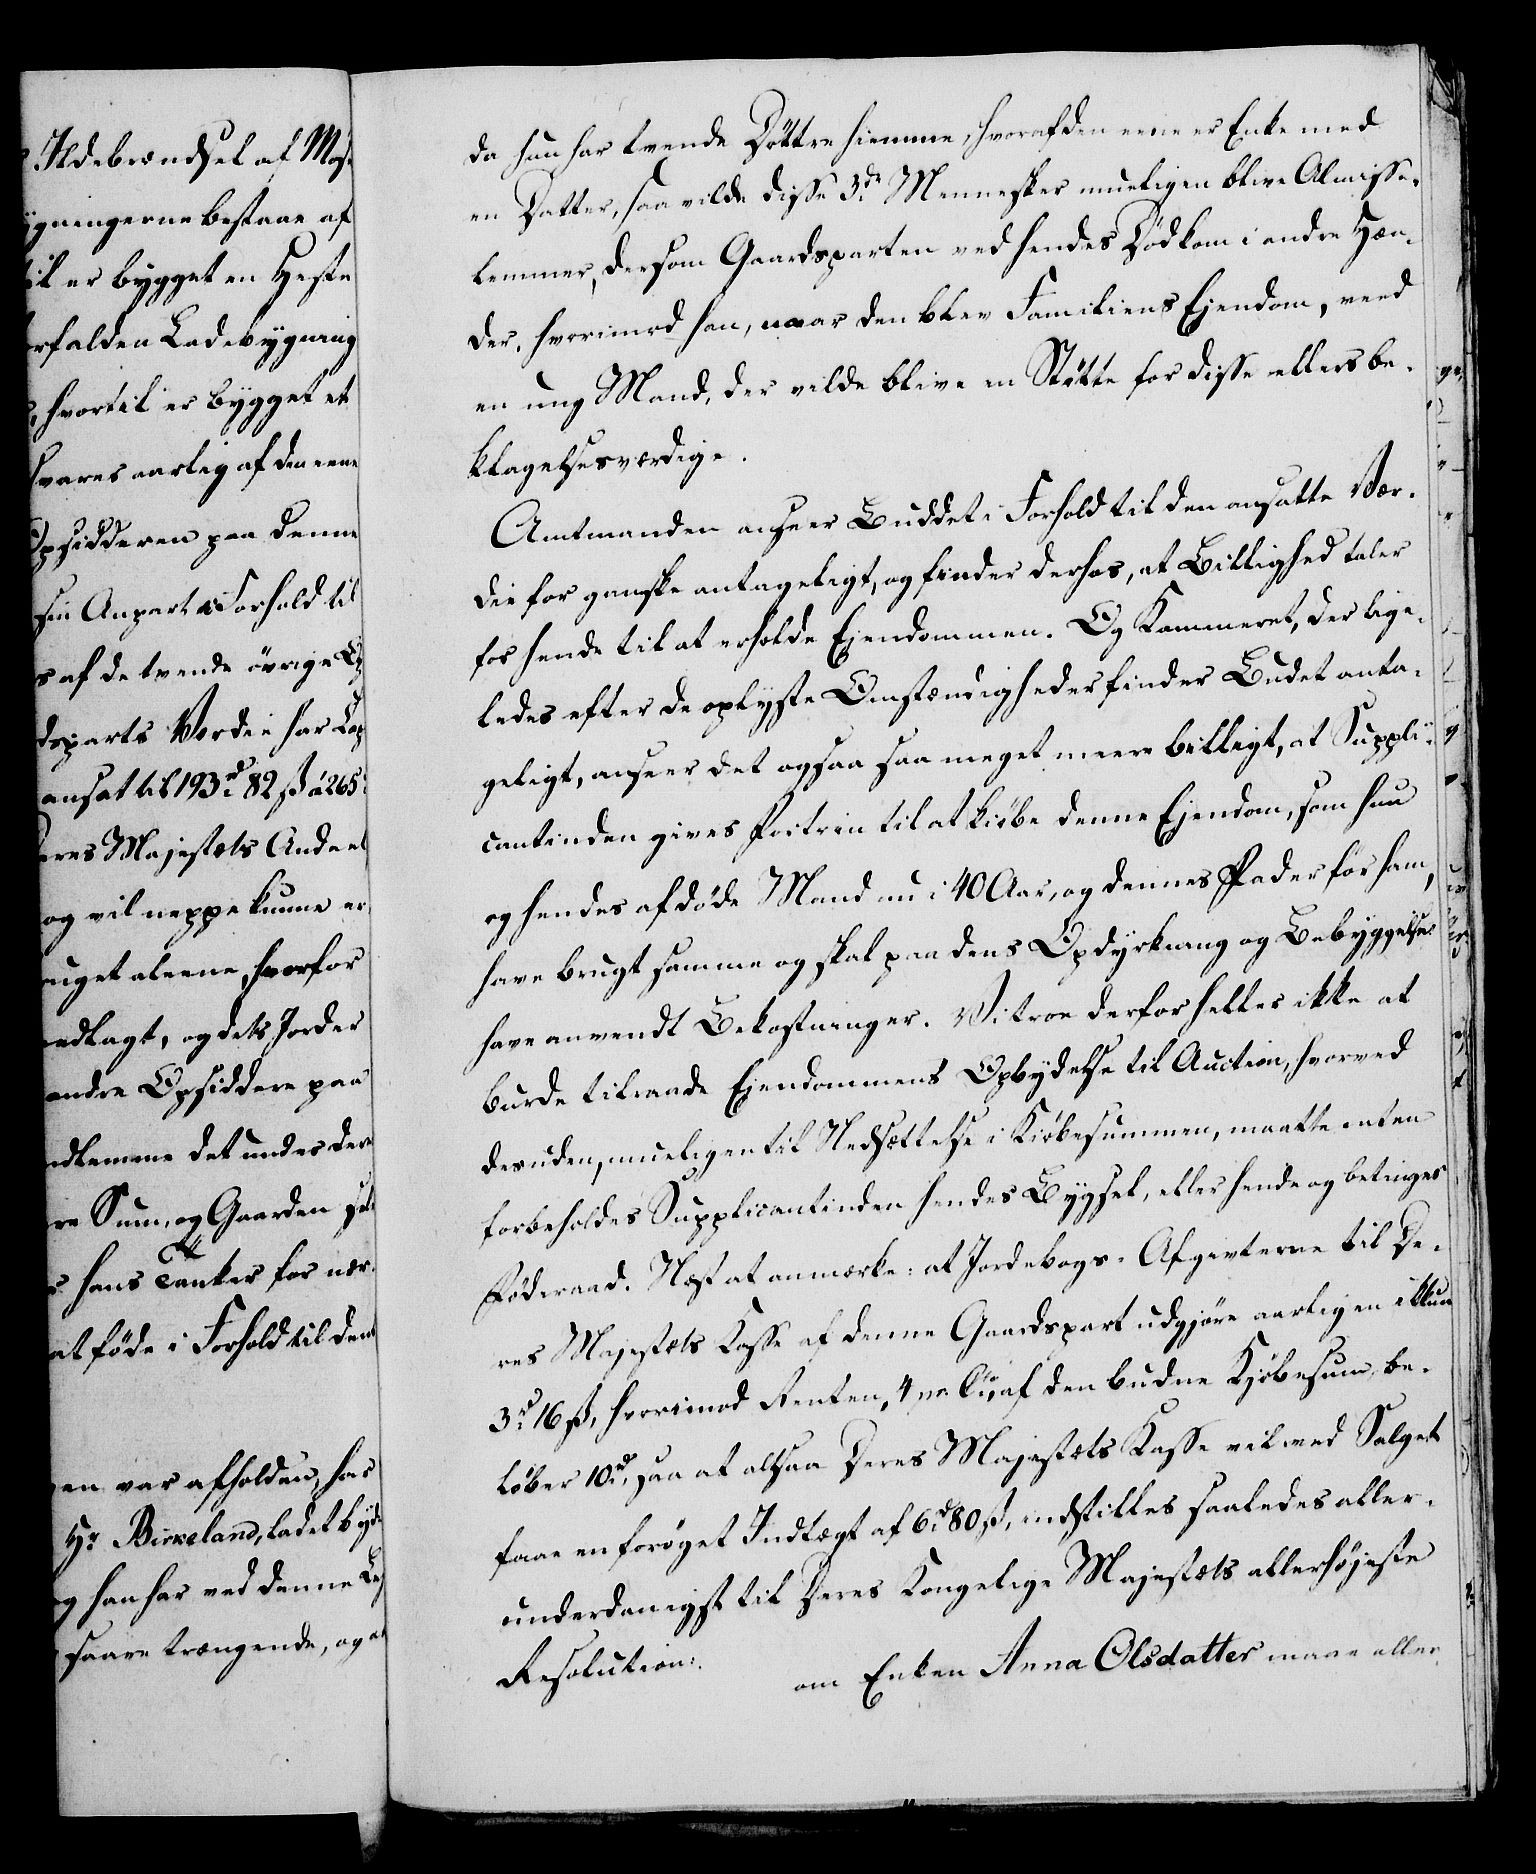 Ildebrændsel af Mos
ygningerne bestaae af
til er bygget en Heste
rfalden Ladebygning
, hvortil er bygget et
svares aarlig af den eene
Opsidderen paa denne
sin Anpart i Forhold til
s af de tvende øvrige
dsparts Værdie har
ansat til 193 rd 82 ß à 265
eres Majestæts Andeel
og vil neppe kunne er
uget aleene, hvorfor
edlagt, og dets Jorder
andre Opsiddere paa
ndkomme det under der
re Sum, og Gaarden
s hans Tanker for nær
at føde i Forhold til den
en var afholden, har
Hr Birkeland, ladet byde
g han har ved denne
saare trængende, og at
da hun har tvende Døttre hiemme, hvoraf den eene er Enke med
en Datter, saa vilde disse 3de Mennesker mueligen blive Almisse-
lemmer, dersom Gaardsparten ved hendes Død kom i andre Hæn-
der, hvorimod han, naar den blev Familiens Ejendom, veed
en ung Mand, der vilde blive en Støtte for disse ellers be-
klagelsesværdige.
Amtmanden anseer Buddet i Forhold til den ansatte Vær-
die for ganske antageligt, og finder derhos, at Billighed taler
for hende til at erholde Ejendommen. Og Kammeret, der lige-
ledes efter de oplyste Omstændigheder finder Budet anta-
geligt, anseer det ogsaa saa meget meere billigt, at Suppli-
cantinden gives Fortrin til at kiøbe denne Ejendom, som hun
og hendes afdøde Mand nu i 40 Aar, og dennes Fader før ham,
have brugt samme og skal paa dens Opdyrkning og Bebyggelse
have anvendt Bekostninger. Vi troe derfor heller ikke at
burde tilraade Ejendommens Opbydelse til Auction, hvorved
desuden, mueligen til Nedsættelse i Kiøbesummen, maatte enten
forbeholdes Supplicantinden hendes Bygsel, eller hende og betinges
Føderaad. Næst at anmærke: at Jordebogs-Afgivterne til De-
res Majestæts Kasse af denne Gaardspart udgjøre aarligen ikkun
3 rd 16 ß, hvorimod Renten, 4 pr Cto, af den budne Kjøbesum, be-
løber 10 rd, saa at altsaa Deres Majestæts Kasse vil ved Salget
faae en forøget Indtægt af 6 rd 80 ß, indstilles saaledes aller-
underdanigst til Deres Kongelige Majestæts allerhøjeste
Resolution:
om Enken Anna Olsdatter maae aller